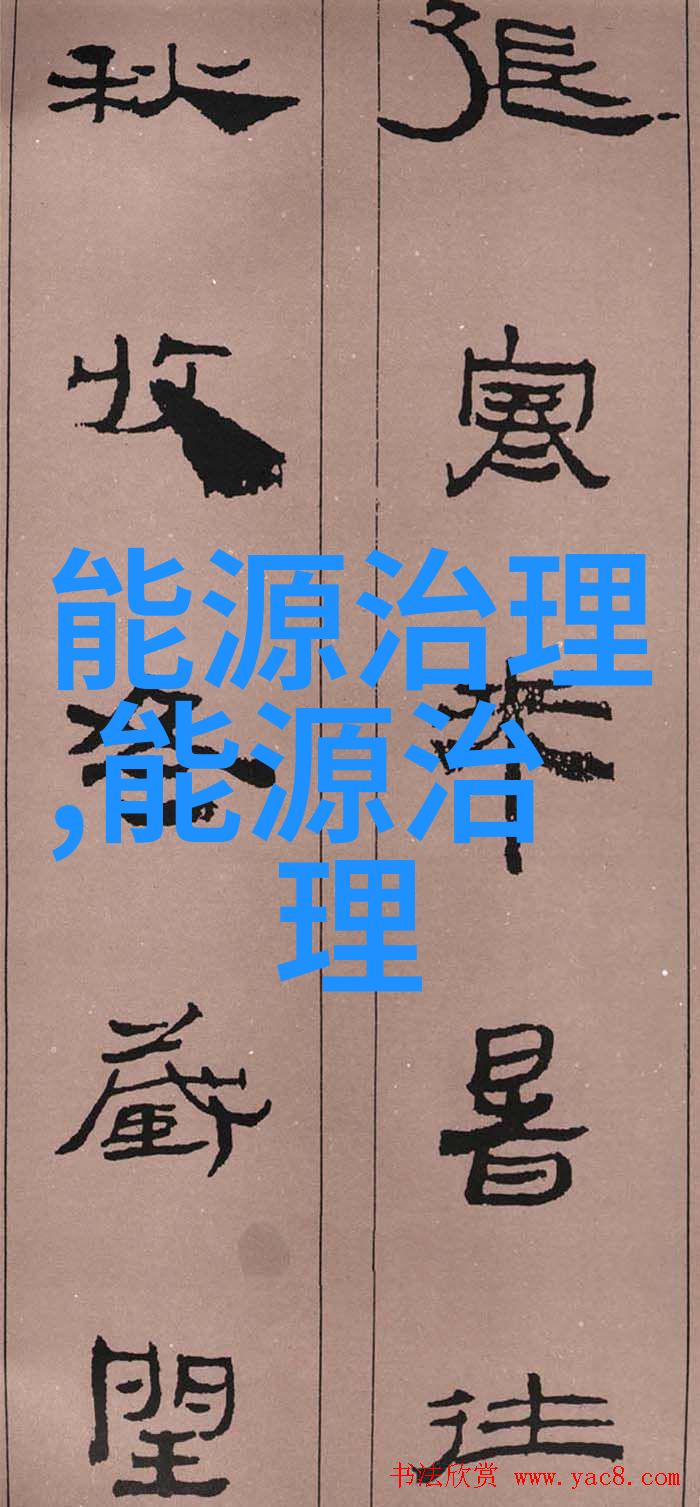 張寒來暑往
秋收冬藏閏
能源治理
,能源治
理
书法欣赏 www.yac8.com